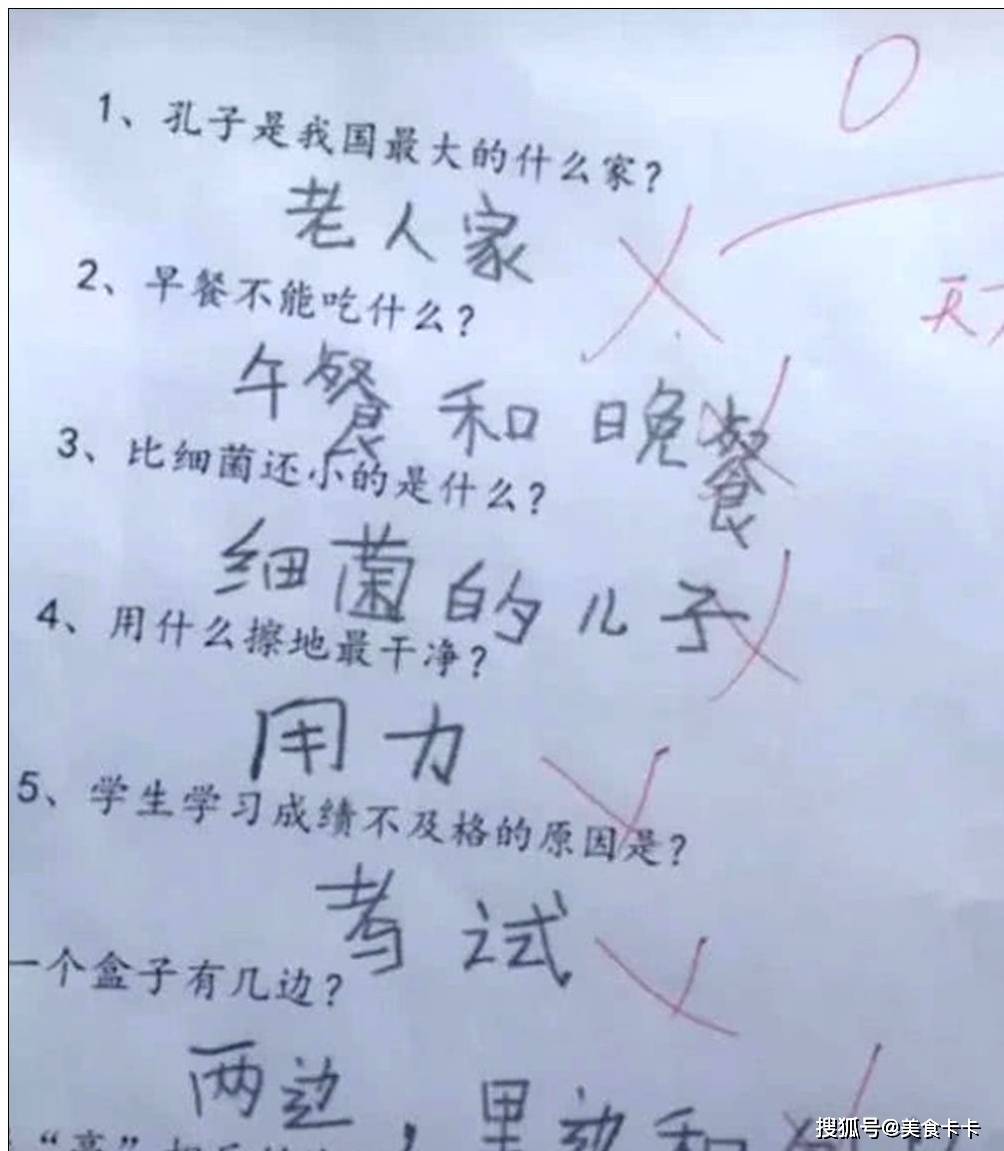 0
1、孔子是我国最大的什么家?
老人家
2、早餐不能吃什么?
午餐和晚餐
3、比细菌还小的是什么?
细菌的儿子
4、用什么擦地最干净?
用力
5、学生学习成绩不及格的原因是?
考试
一个盒子有几边?
两边,里边和
搜狐号@美食卡卡